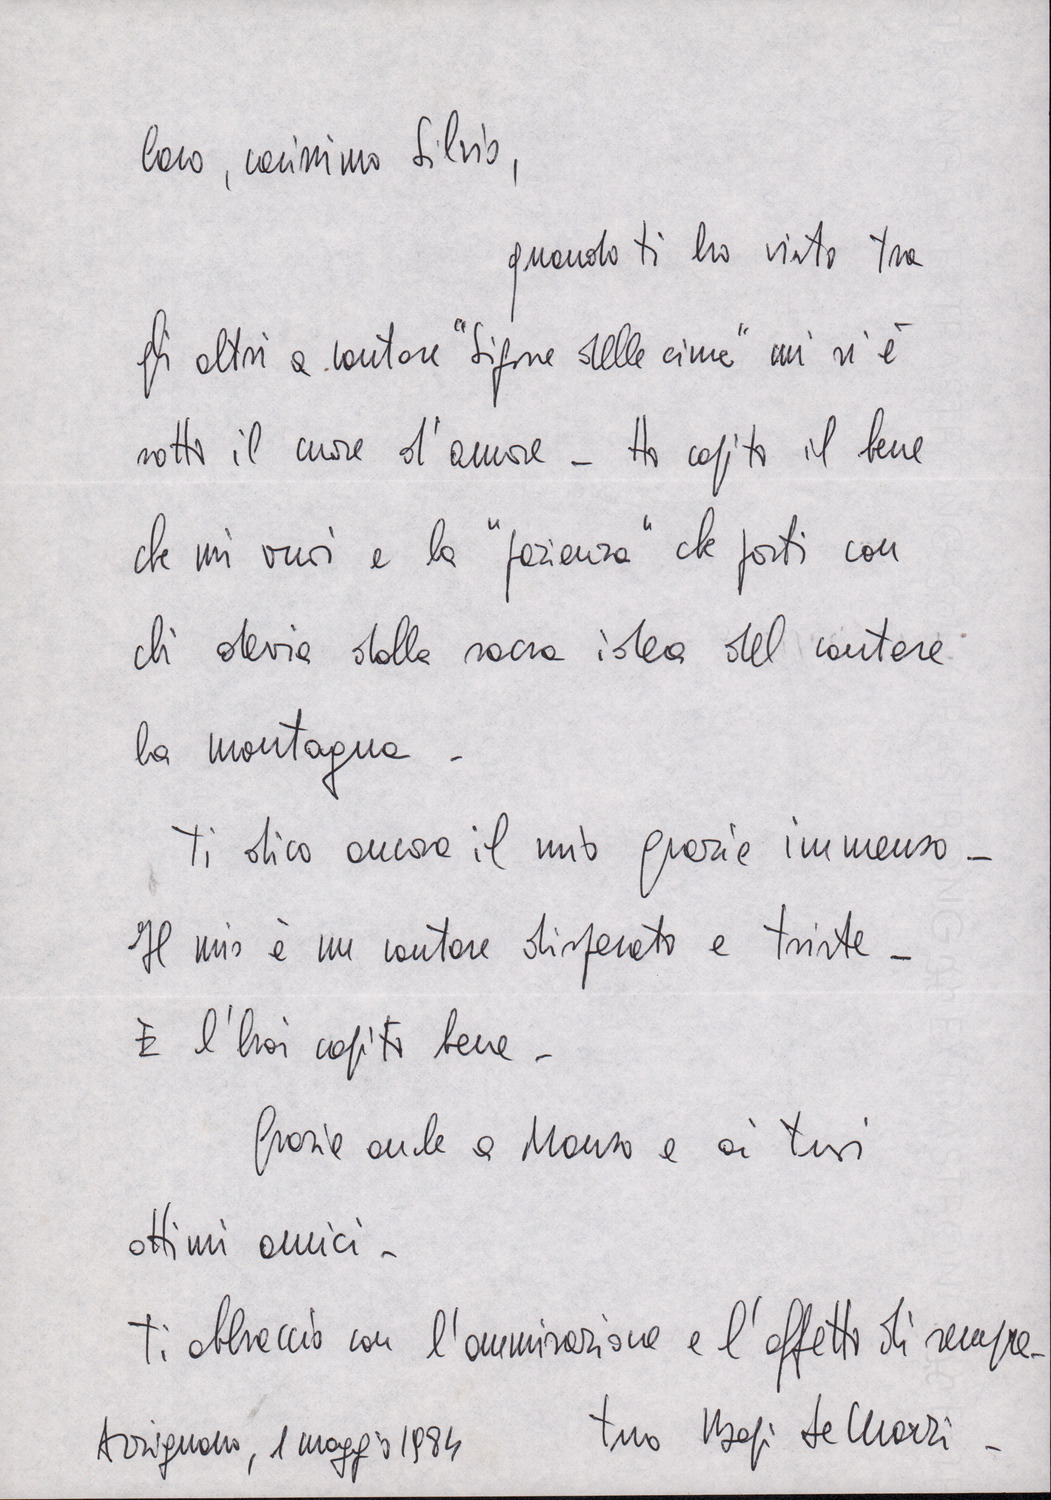 Caro, carissimo Silvio,
quando ti ho visto tra
gli altri a cantare "Signore delle cime" mi si è
rotto il cuore d'amore - Ho capito il bene
che mi vuoi e la "pazienza" che porti con
chi devia dalla sacra idea del cantare
la montagna -
Ti dico ancora il mio grazie immenso -
Il mio è un cantare disperato e triste -
E l'hai capito bene -
Grazie anche a Manso e ai tuoi
ottimi amici -
Ti abbraccio con l'ammirazione e l'affetto di sempre -
tuo Bepi De Marzi -
Arzignano, 1 maggio 1984